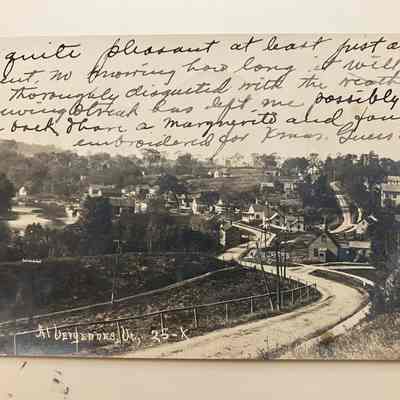 quite pleasant at least just a
no knowing how long it will
thoroughly disgusted with the weath
has left me possibly
back, than a marguerite and four
embroidered for Xmas. Guess
At Vergennes, Vt. 25-X